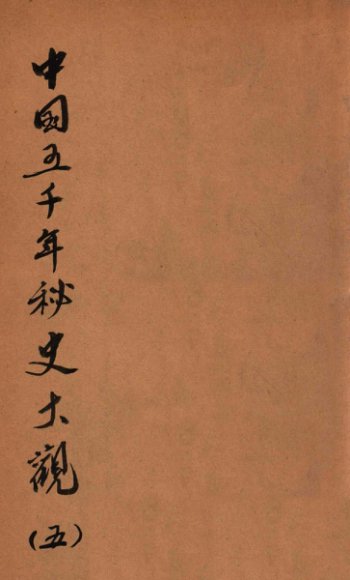 中国五千年秘史大觀(五)